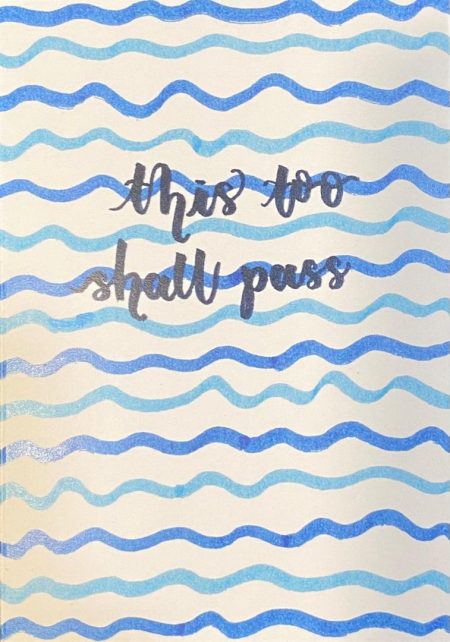 this too
shall pass